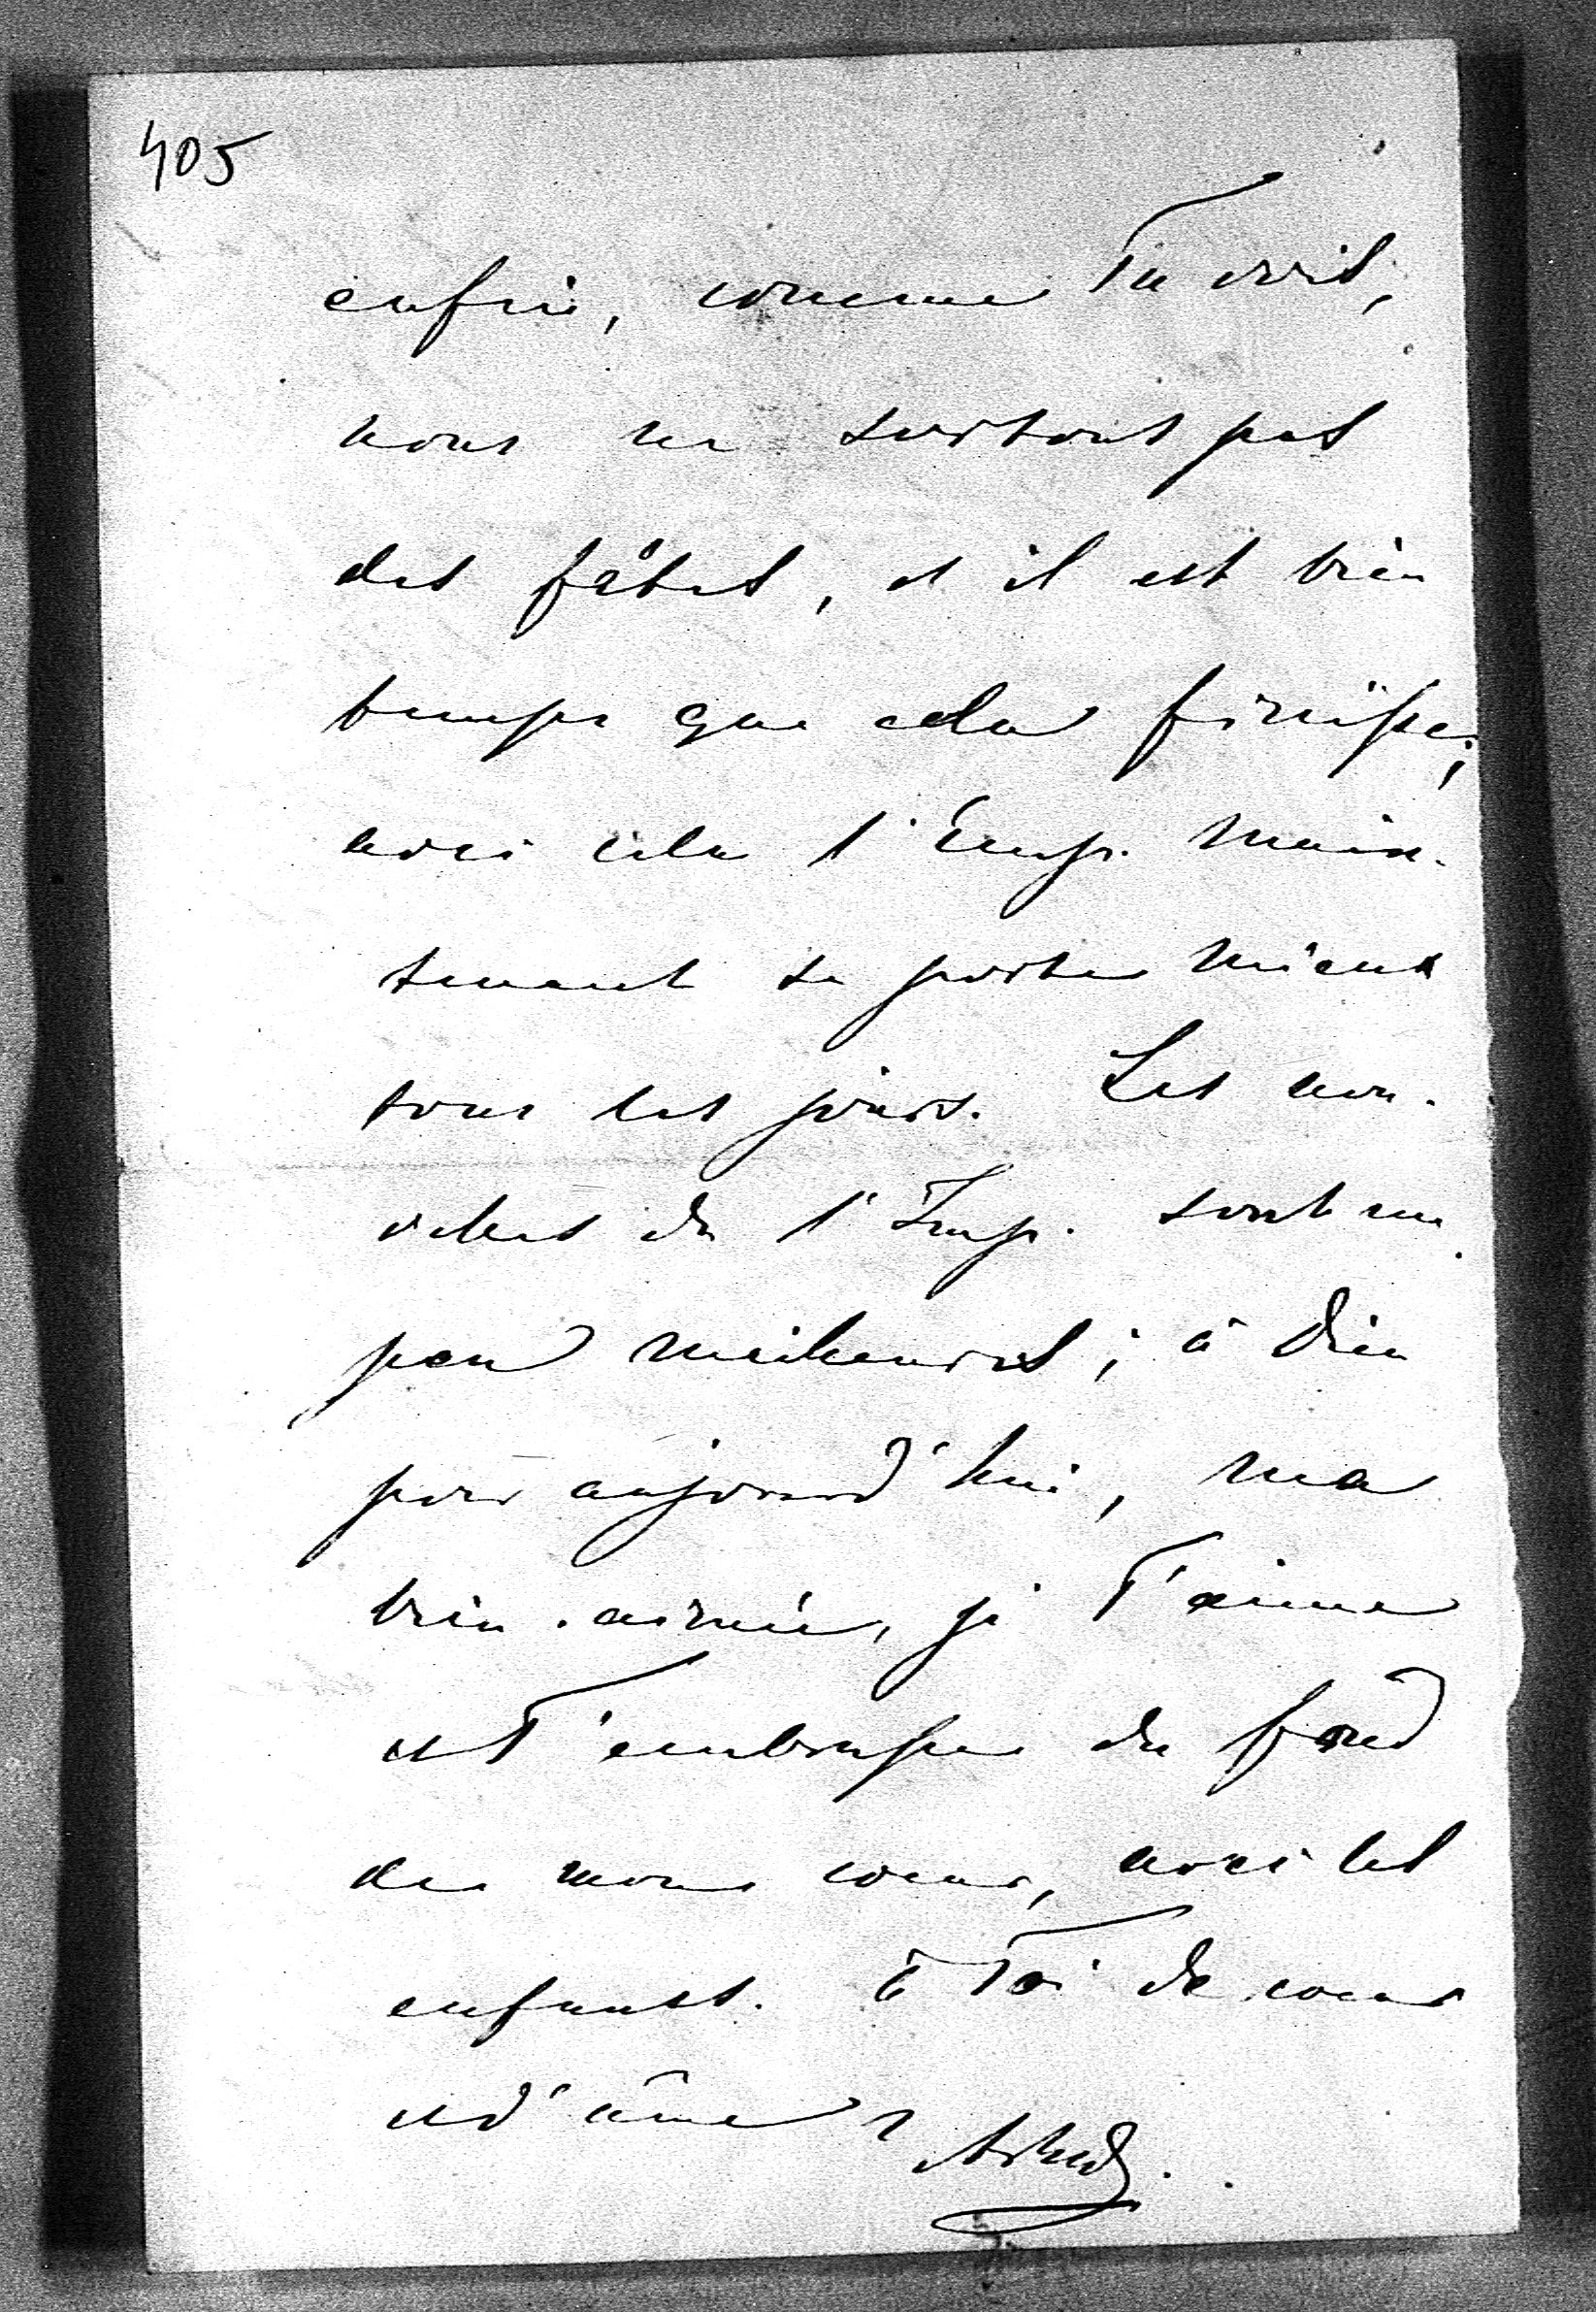 405
enfin, comme Tu vois,
nous ne sortons pas
des fêtes, et il est bien
temps que cela finisse;
avec cela l'Emp. main-
tenant se porte mieux
tous les jours. Les nou-
velles de l'Imp. sont un
peu meilleures; à Dieu
pour aujourd'hui, ma
bien-aimée, je T'aime
et T'embrasse du fond
de mon coeur, avec les
enfants. à Toi de coeur
et d'âme